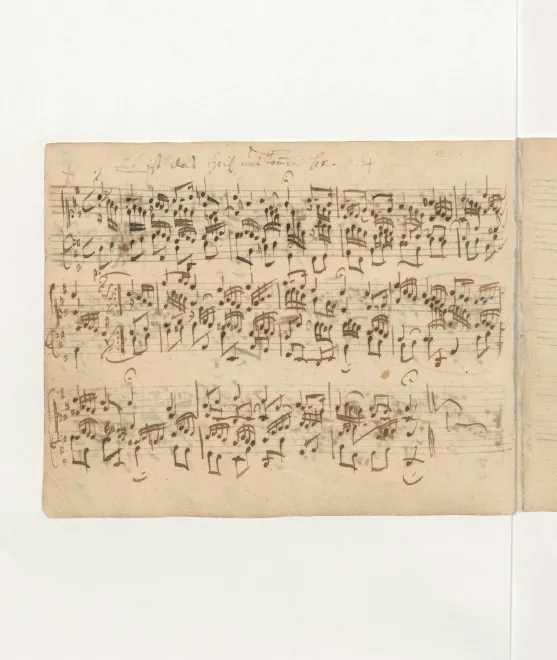 Es ist das Heil uns komen her.